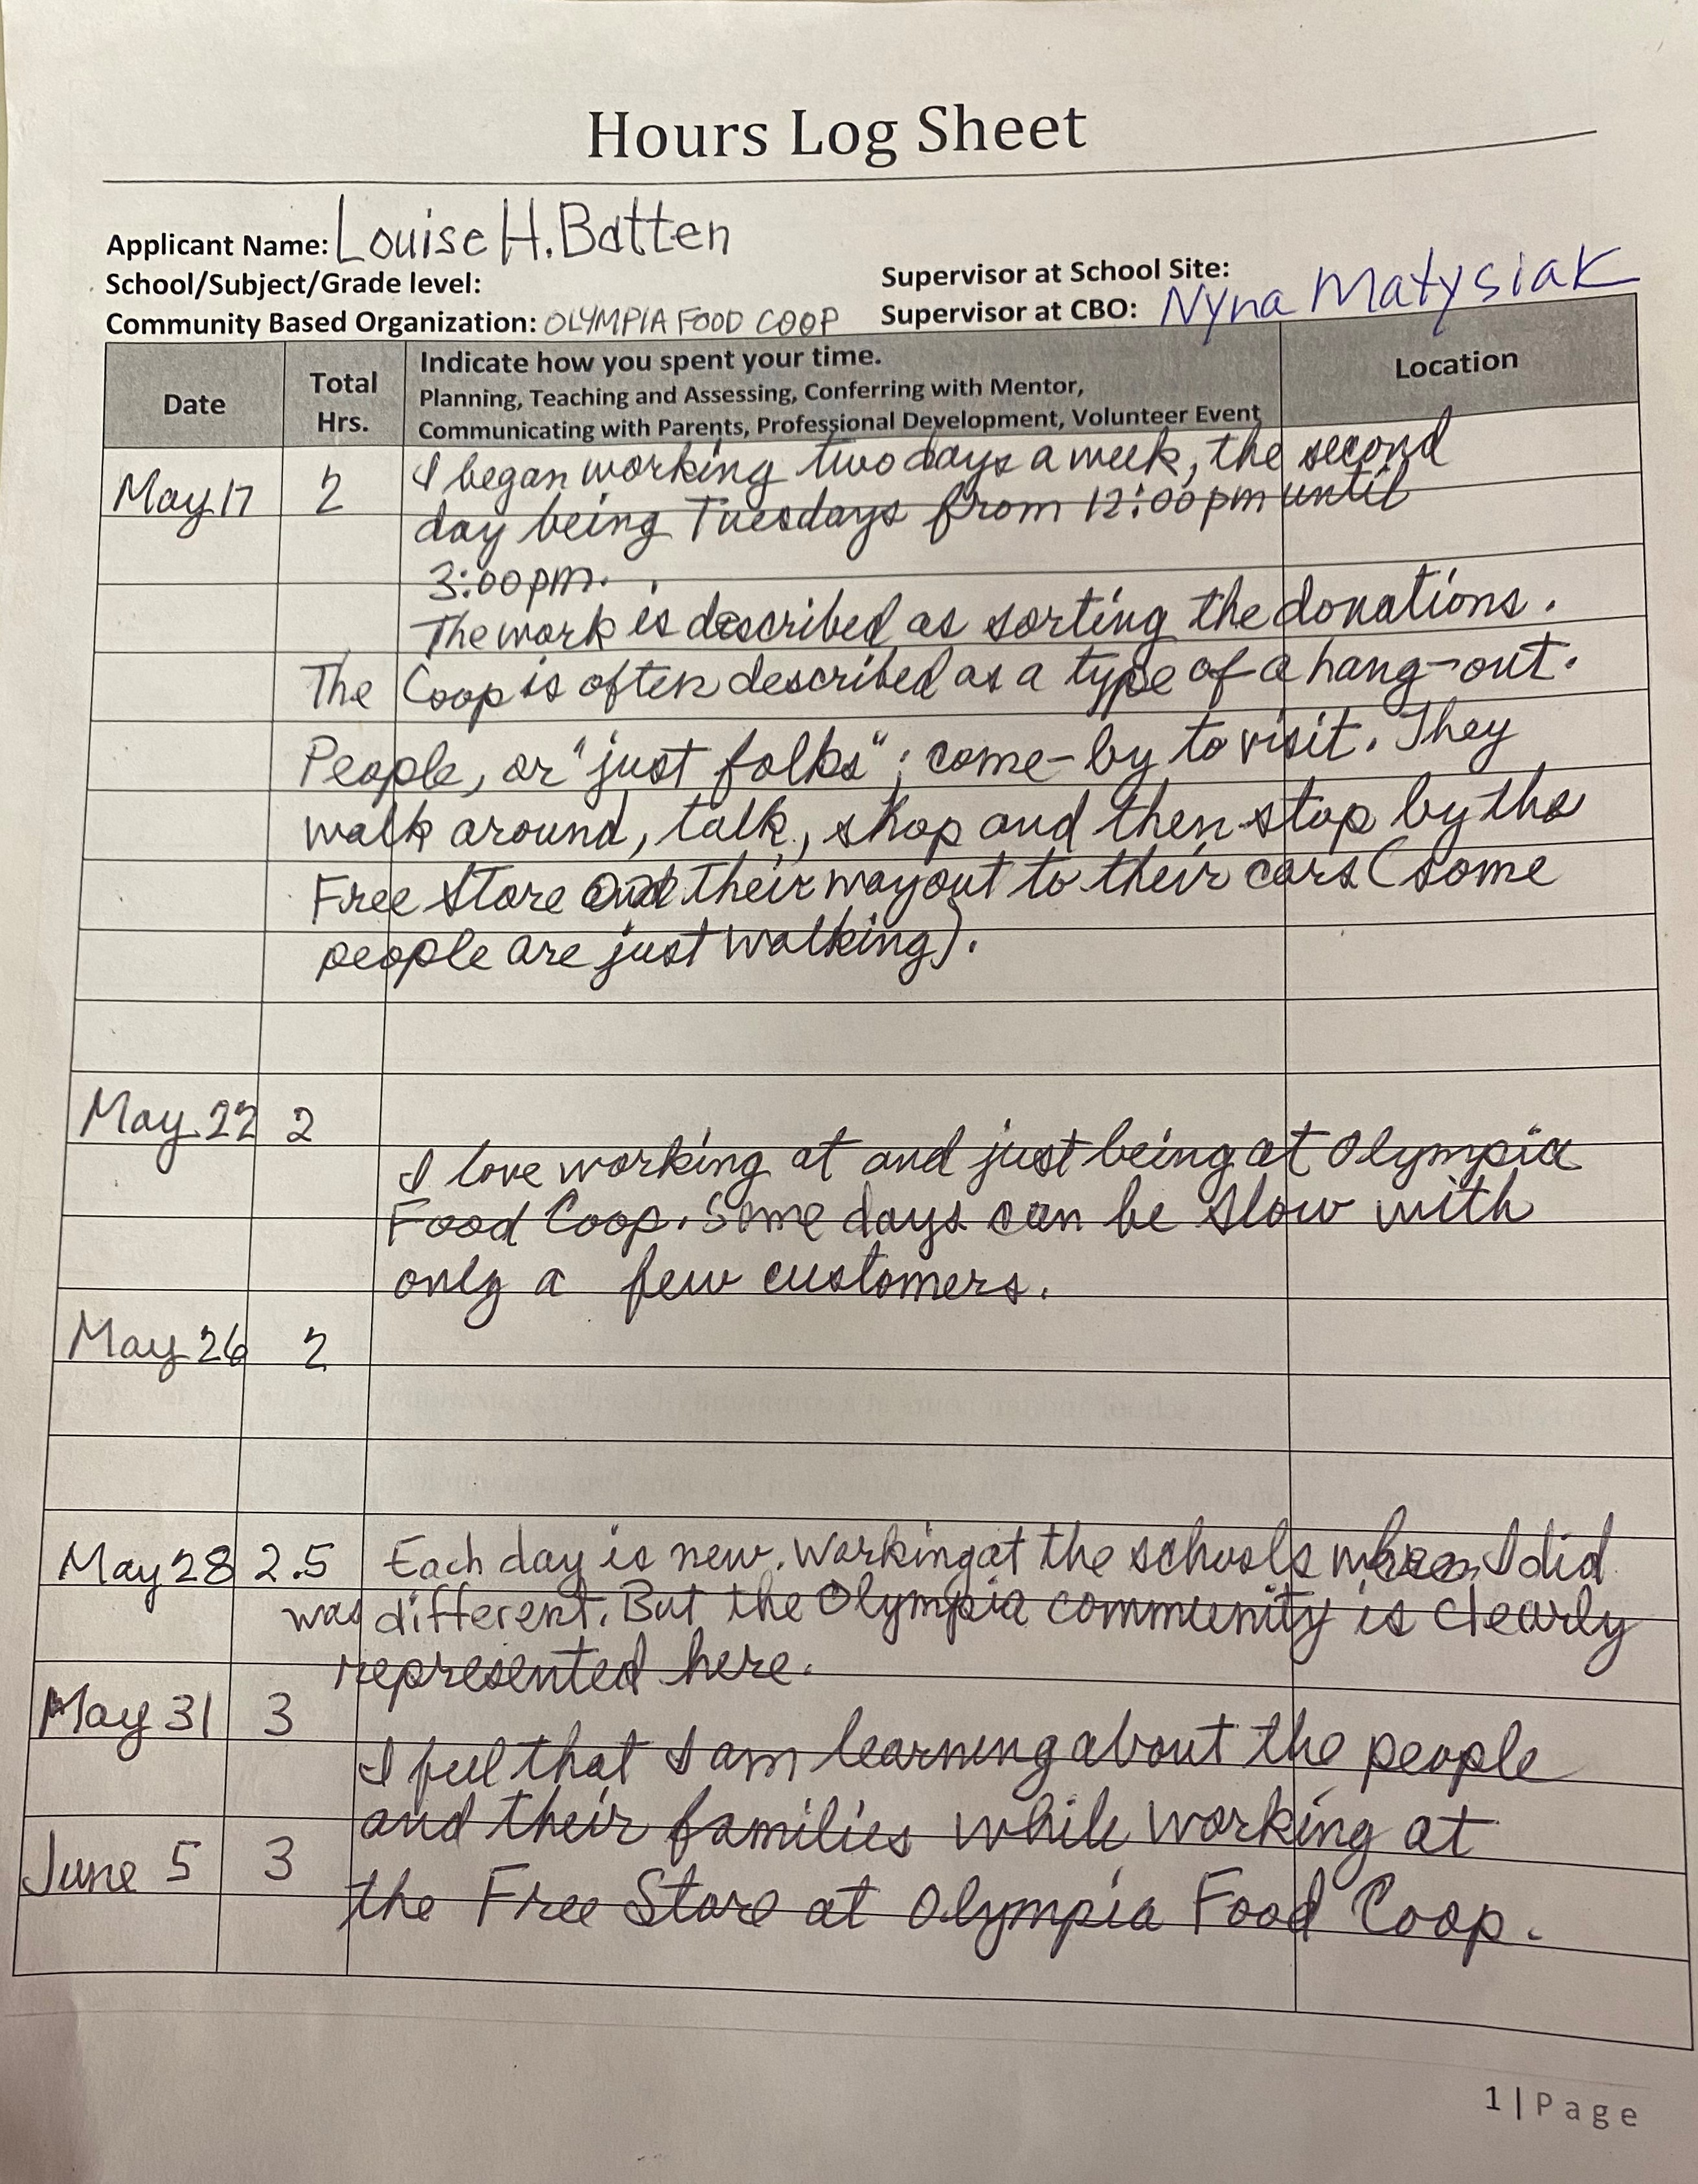 Hours Log Sheet
Applicant Name: Louise H. Batten
School/Subject/Grade level:
Supervisor at School Site:
Community Based Organization: OLYMPIA FOOD COOP
Supervisor at CBO: Nyna Matysiak
Date
Total Hrs.
Indicate how you spent your time.
Planning, Teaching and Assessing, Conferring with Mentor,
Communicating with Parents, Professional Development, Volunteer Event
Location
May 17 2 I began working two days a week, the second
day being Tuesdays from 12:00pm until
3:00pm.
The work is described as sorting the donations.
The Coop is often described as a type of a hang-out.
People, or "just folks"; come-by to visit. They
walk around, talk, shop and then stop by the
Free Store their way out to their cars (some
people are just walking).
May 22 2
I love working at and just being at Olympia
Food Coop. Some days can be slow with
only a few customers.
May 26 2
May 28 2.5 Each day is new. Working at the schools when I did
was different. But the Olympia community is clearly
represented here.
May 31 3
I feel that I am learning about the people
and their families while working at
June 5 3
the Free Store at Olympia Food Coop.
1 | Page